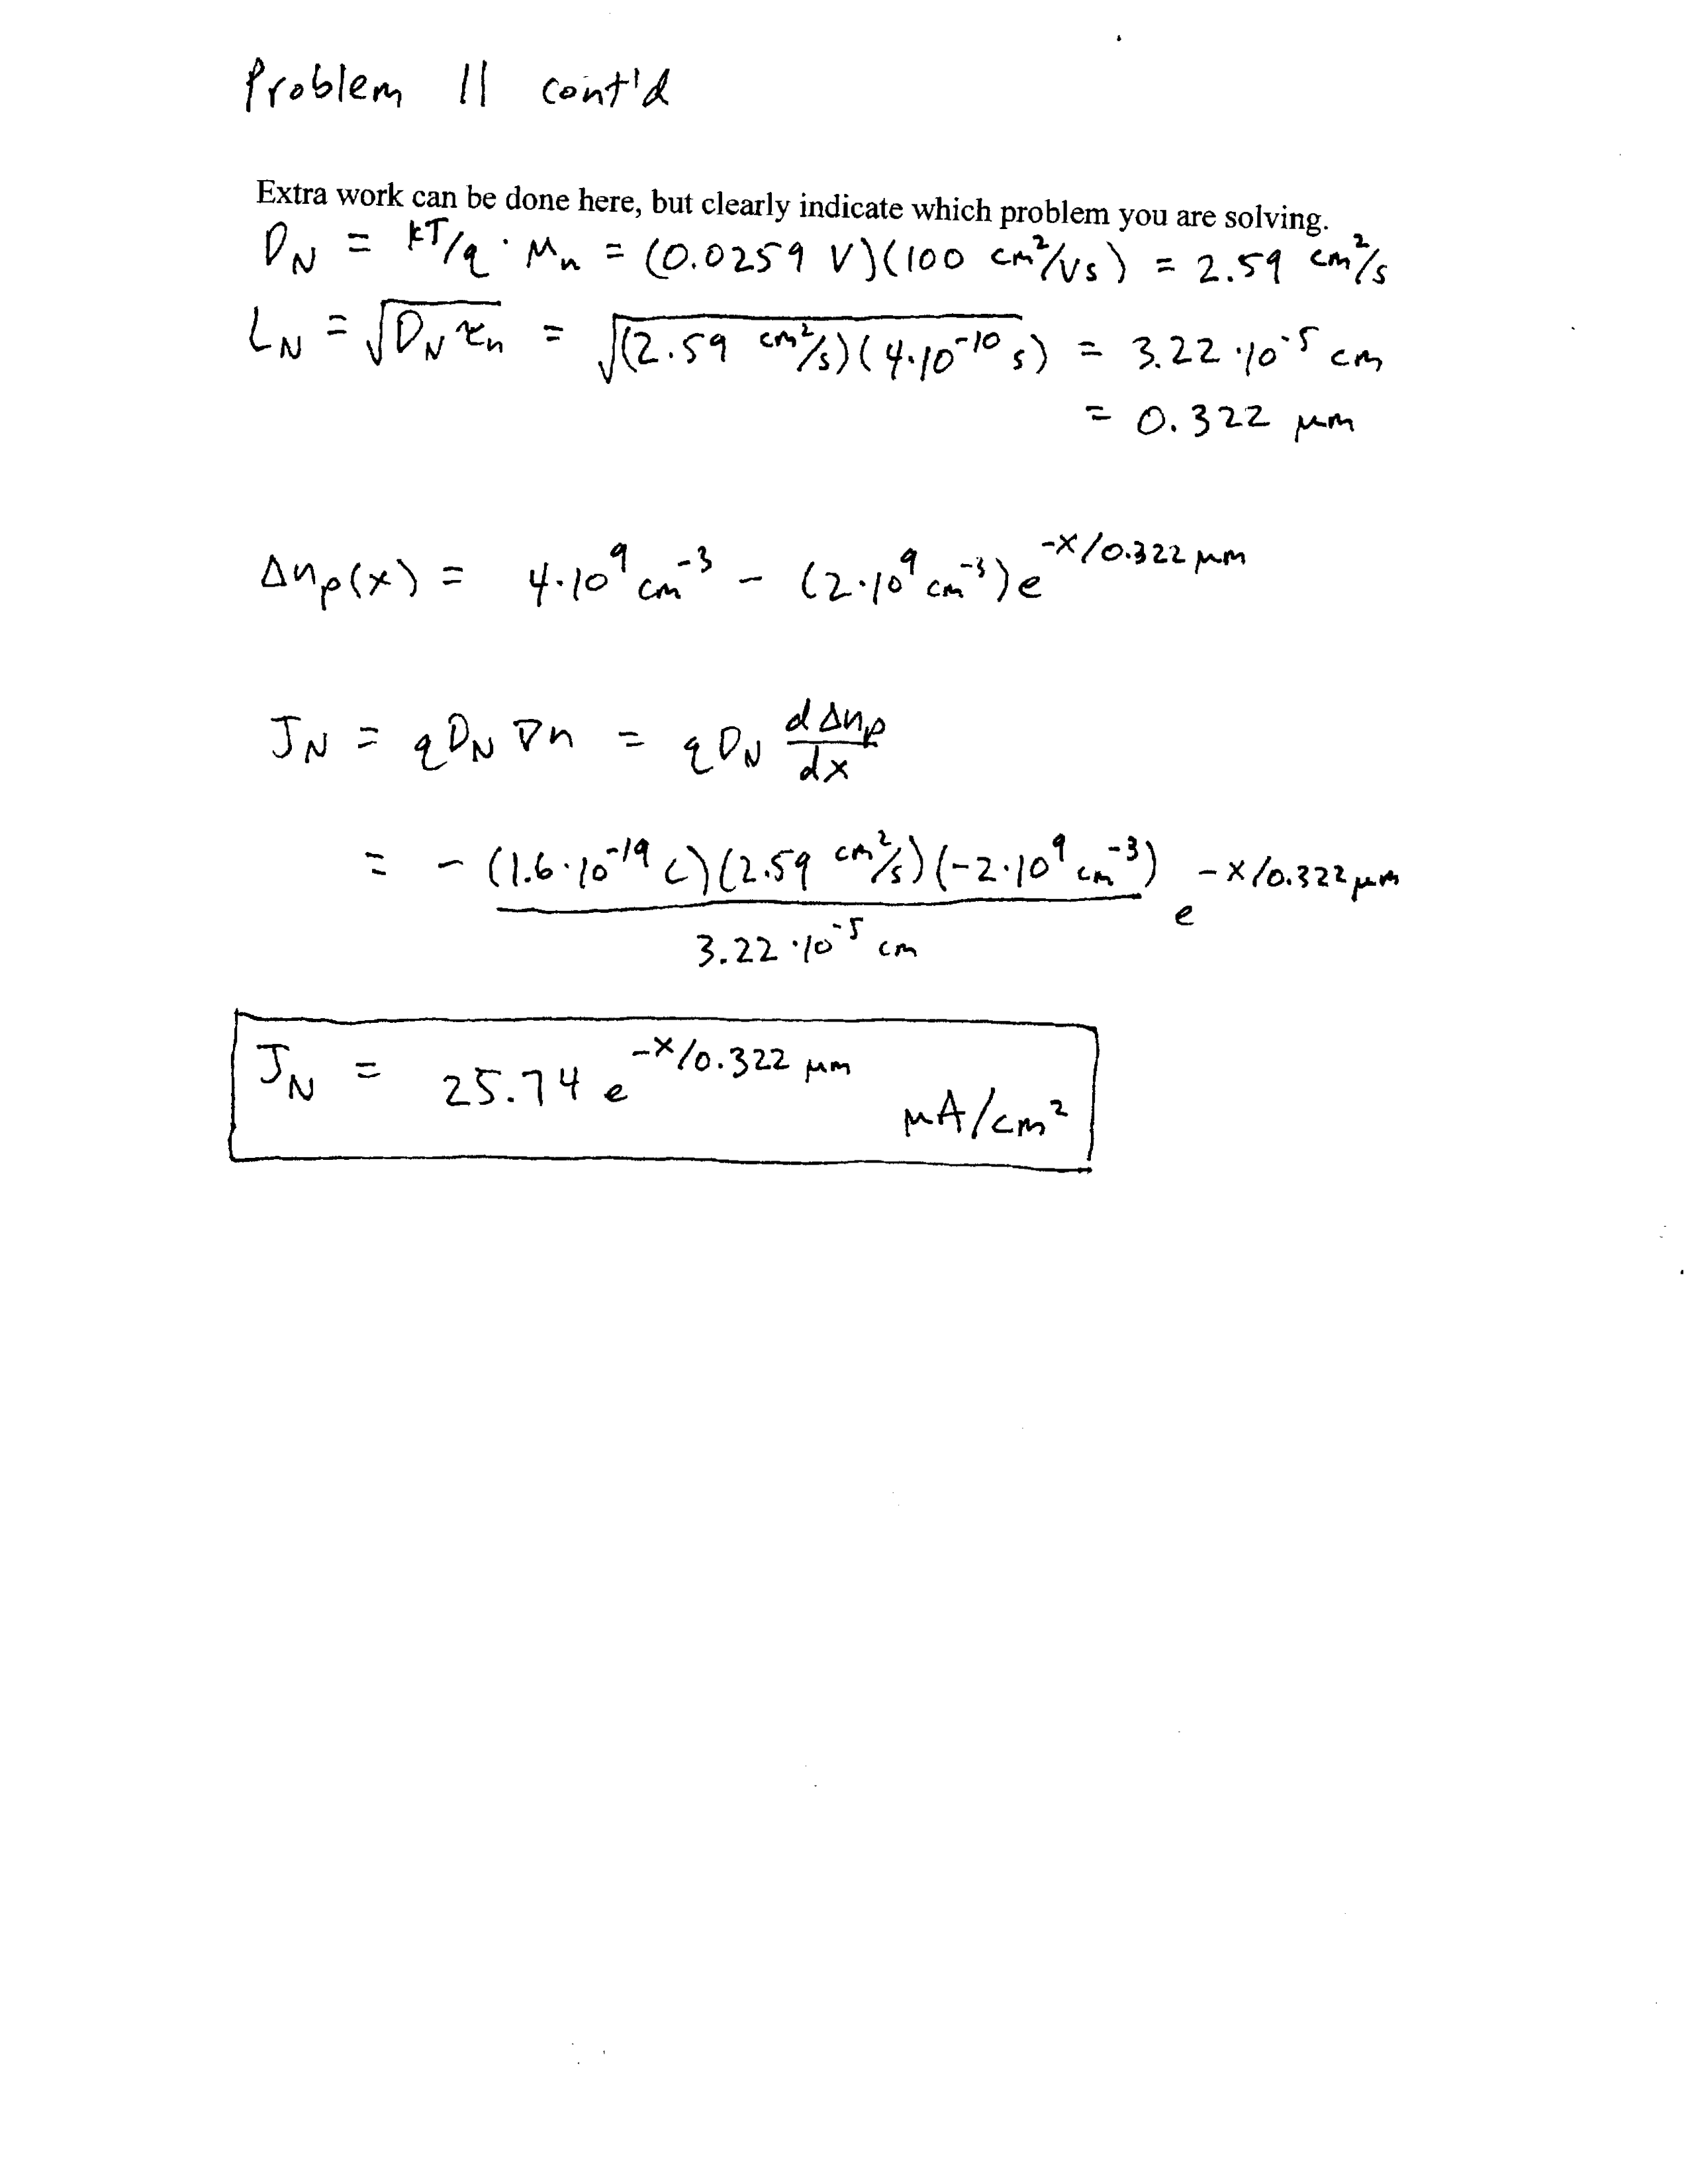 Problem 11 cont'd
Extra work can be done here, but clearly indicate which problem you are solving.
D_N = kT/q · μ_n = (0.0259 V)(100 cm²/Vs) = 2.59 cm²/s
L_N = √(D_N τ_n) = √((2.59 cm²/s)(4·10⁻¹⁰ s)) = 3.22·10⁻⁵ cm
= 0.322 μm
Δn_p(x) = 4·10⁹ cm⁻³ - (2·10⁹ cm⁻³) e^(-x/0.322 μm)
J_N = q D_N ∇n = q D_N dΔn_p/dx
= - (1.6·10⁻¹⁹ C)(2.59 cm²/s)(-2·10⁹ cm⁻³) e^(-x/0.322 μm)
3.22·10⁻⁵ cm
J_N = 25.74 e^(-x/0.322 μm) μA/cm²